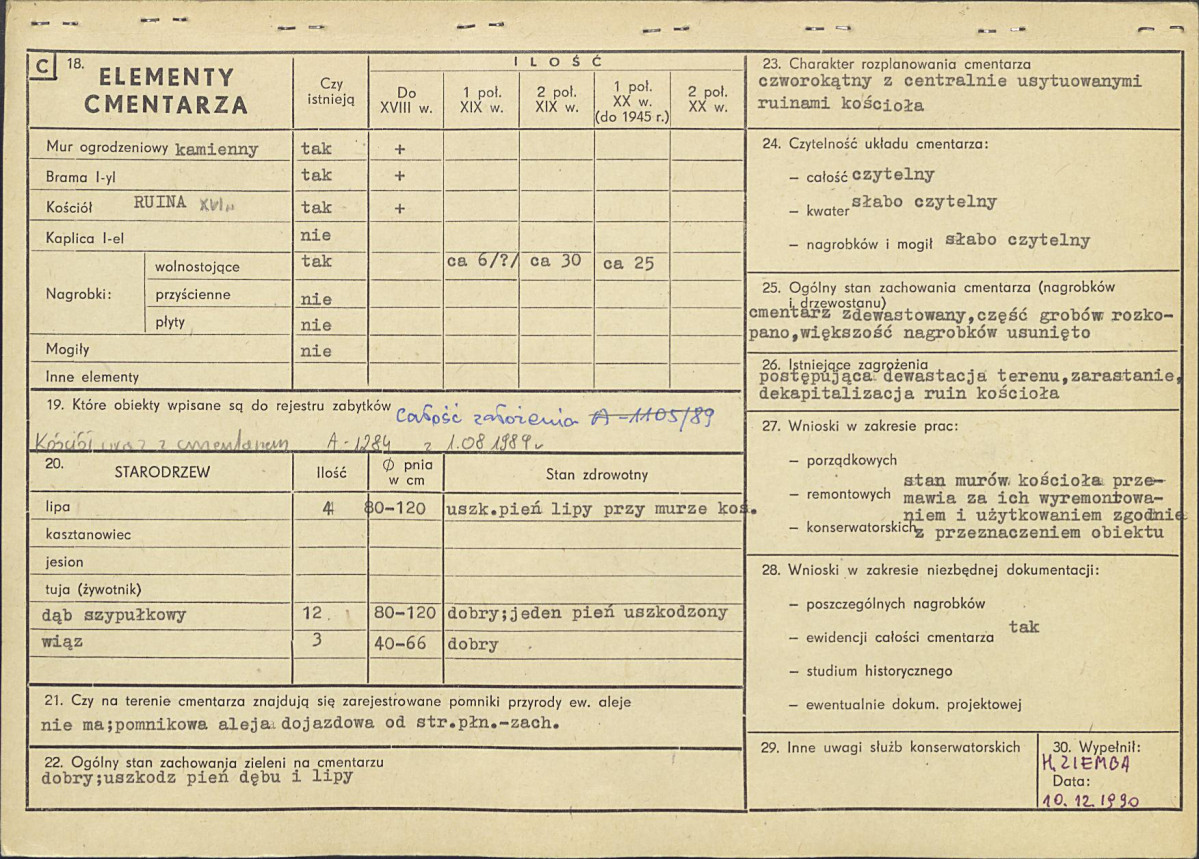 C 18. ELEMENTY CMENTARZA
Czy istnieją
ILOŚĆ
Do XVIII w.
1 poł. XIX w.
2 poł. XIX w.
1 poł. XX w. (do 1945 r.)
2 poł. XX w.
Mur ogrodzeniowy kamienny tak +
Brama I-yl tak +
Kościół RUINA XVI w tak +
Kaplica I-el nie
Nagrobki:
wolnostojące tak ca 6/?/ ca 30 ca 25
przyścienne nie
płyty nie
Mogiły nie
Inne elementy
19. Które obiekty wpisane są do rejestru zabytków Całość założenia A-1105/89
Kościół wraz z cmentarzem A-1284 z 1.08.1989 r
20. STARODRZEW
Ilość
Ø pnia w cm
Stan zdrowotny
lipa 4 80-120 uszk.pień lipy przy murze koś.
kasztanowiec
jesion
tuja (żywotnik)
dąb szypułkowy 12. 80-120 dobry;jeden pień uszkodzony
wiąz 3 40-66 dobry
21. Czy na terenie cmentarza znajdują się zarejestrowane pomniki przyrody ew. aleje
nie ma;pomnikowa aleja dojazdowa od str.płn.-zach.
22. Ogólny stan zachowania zieleni na cmentarzu
dobry;uszkodz pień dębu i lipy
23. Charakter rozplanowania cmentarza
czworokątny z centralnie usytuowanymi
ruinami kościoła
24. Czytelność układu cmentarza:
– całość czytelny
– kwater słabo czytelny
– nagrobków i mogił słabo czytelny
25. Ogólny stan zachowania cmentarza (nagrobków
i drzewostanu)
cmentarz zdewastowany,część grobów rozko-
pano,większość nagrobków usunięto
26. Istniejące zagrożenia
postępująca dewastacja terenu,zarastanie,
dekapitalizacja ruin kościoła
27. Wnioski w zakresie prac:
– porządkowych
– remontowych
– konserwatorskich
stan murów kościoła prze-
mawia za ich wyremontowa-
niem i użytkowaniem zgodnie
z przeznaczeniem obiektu
28. Wnioski w zakresie niezbędnej dokumentacji:
– poszczególnych nagrobków
– ewidencji całości cmentarza tak
– studium historycznego
– ewentualnie dokum. projektowej
29. Inne uwagi służb konserwatorskich
30. Wypełnił:
H. ZIEMBA
Data:
10.12.1990